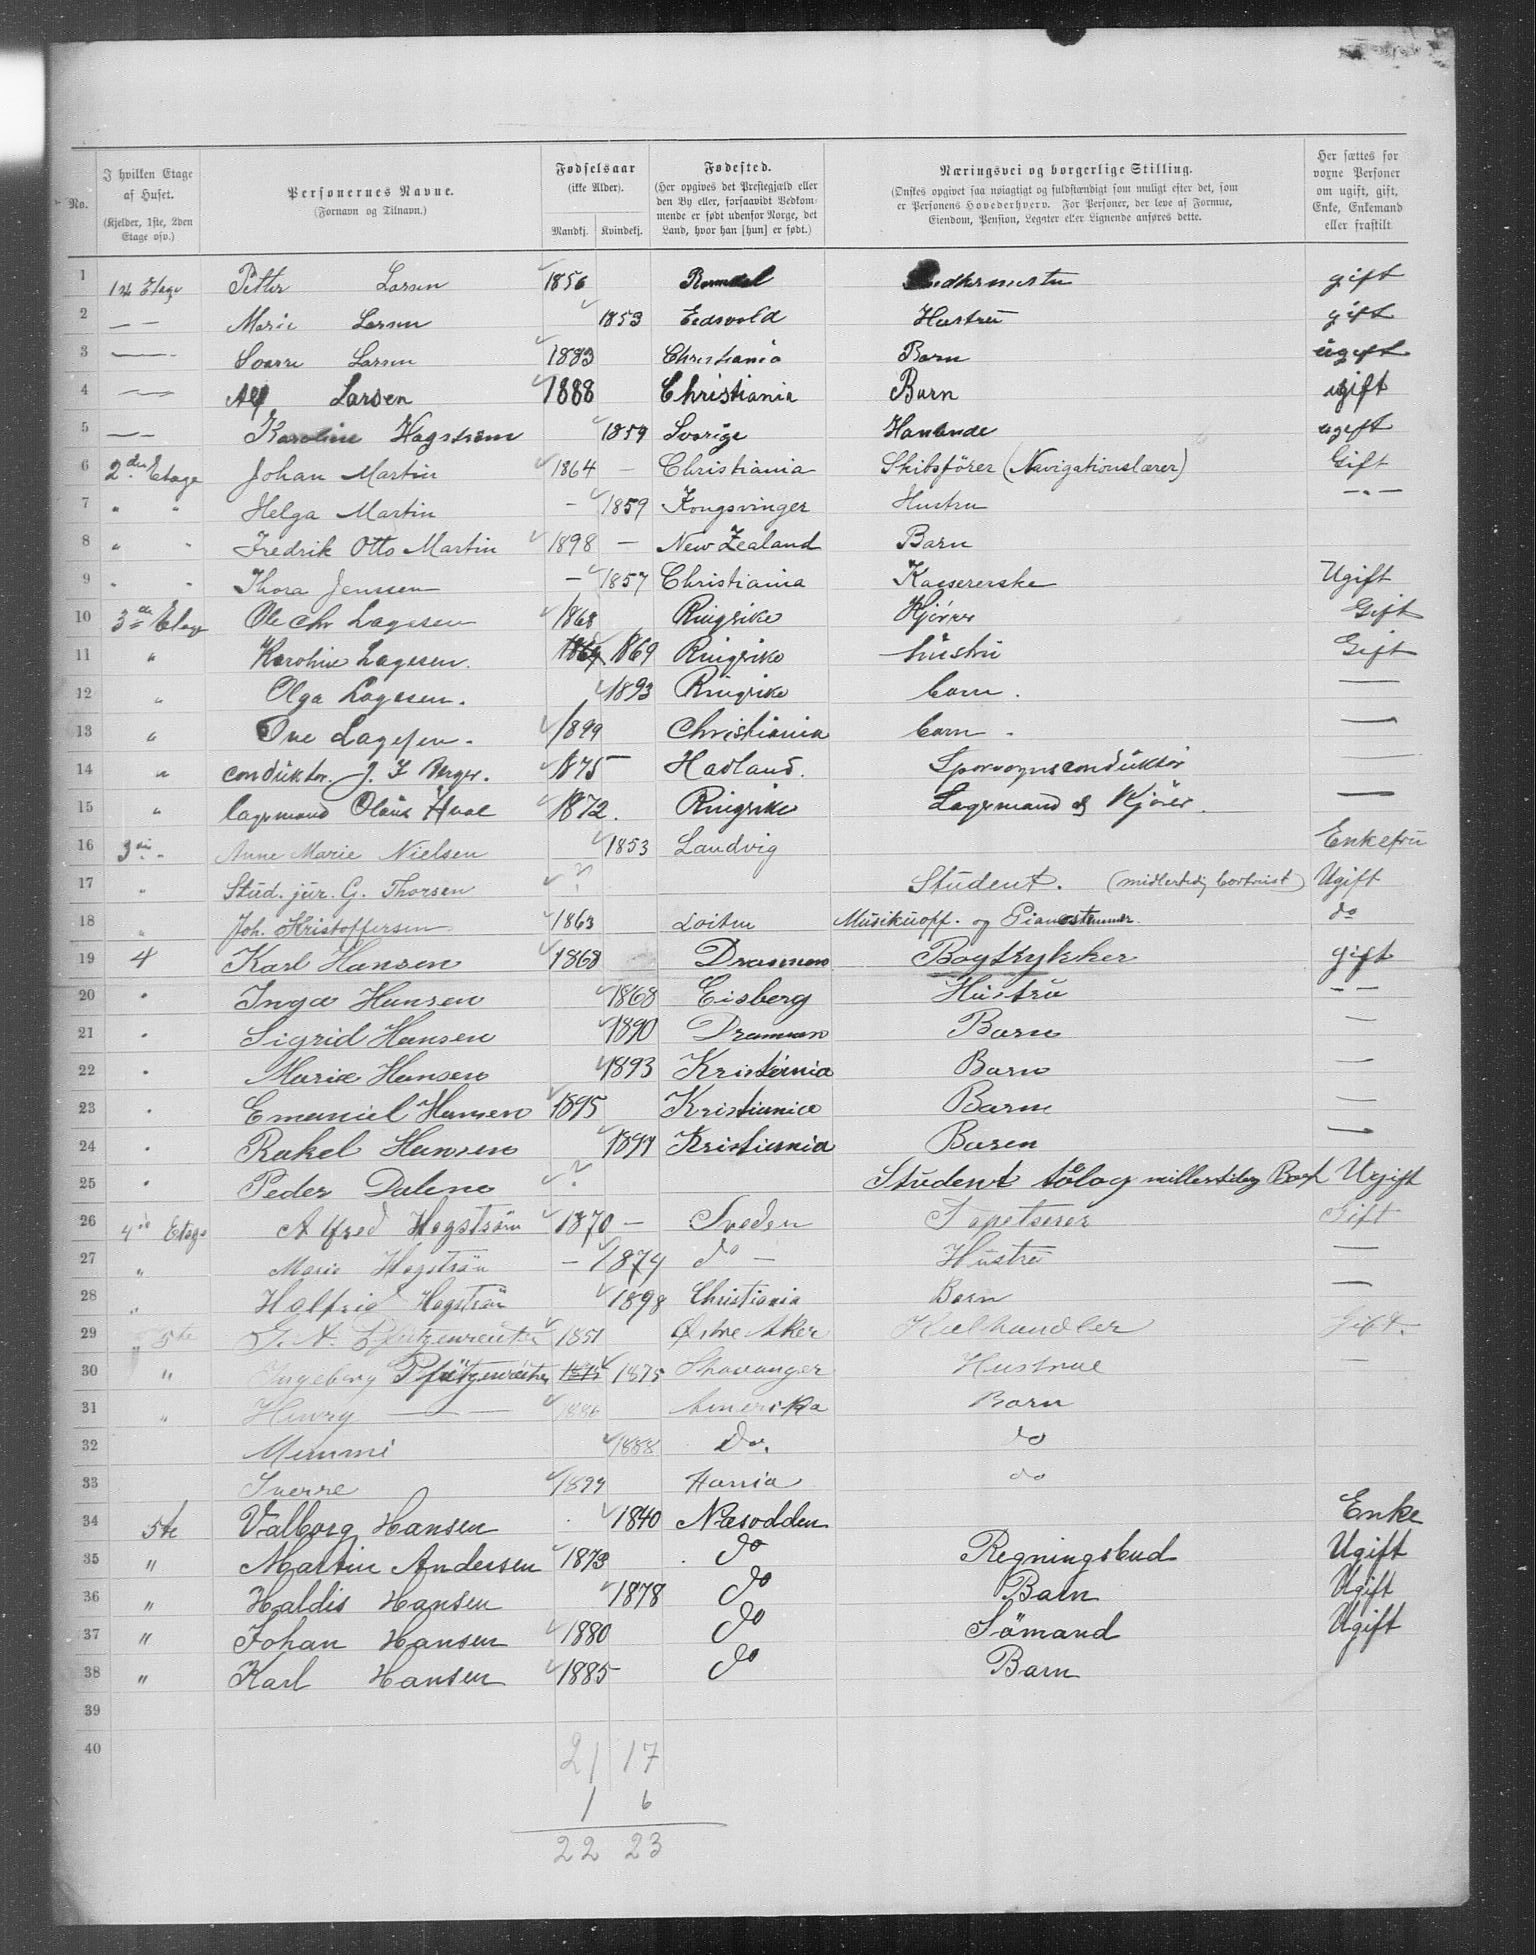 No.
I hvilken Etage af Huset. (Kjelder, 1ste, 2den Etage osv.)
Personernes Navne. (Fornavn og Tilnavn.)
Fødselsaar (ikke Alder). Mandkj. Kvindekj.
Fødested. (Her opgives det Prestegjæld eller den By eller, forsaavidt Vedkommende er født udenfor Norge, det Land, hvor han [hun] er født.)
Næringsvei og borgerlige Stilling. (Ønskes opgivet saa nøiagtigt og fuldstændigt som muligt efter det, som er Personens Hovederhverv. For Personer, der leve af Formue, Eiendom, Pension, Legater eller Lignende anføres dette.)
Her sættes for voxne Personer om ugift, gift, Enke, Enkemand eller fraskilt
1 1ste Etage Petter Larsen 1856 gift
2 — — Marie Larsen 1853 Eidsvold Hustru gift
3 — Sverre Larsen 1883 Christiania Barn ugift
4 — Alf Larsen 1888 Christiania Barn ugift
5 — Karoline Hagstrøm 1859 Sverige ugift
6 2den Etage Johan Martin 1864 — Christiania Skibsfører (Navigationslærer) Gift
7 " " Helga Martin — 1859 Kongsvinger Hustru — " —
8 " " Fredrik Otto Martin 1898 — New Zealand Barn
9 " " Thora Jenssen — 1857 Christiania Kassererske Ugift
10 3de Etage Ole Chr Lagesen 1868 Ringrike Kjører Gift
11 " Karoline Lagesen 1869 1869 Ringrike hustru Gift
12 " Olga Lagesen. 1893 Ringrike barn. —
13 " Ove Lagesen. 1899 Christiania barn. —
14 " conduktor. J. Berger. 1875 — Hadland. Sporvognsconduktør —
15 " lagermand Olaus Hval 1872. Ringrike Lagermand og Kjører. —
16 3die " Anne Marie Nielsen 1853 Landvig Enkefru
17 " Stud. jur. G. Thorsen ? Student. (midlertidig bortreist) Ugift
18 " Joh. Kristoffersen 1863 Loiten Musikuopf. og Pianostemmer. do
19 4 Karl Hansen 1868 Drammen Bogtrykker gift
20 " Inga Hansen 1868 Eisberg Hustru — —
21 " Sigrid Hansen 1890 Drammen Barn —
22 " Marie Hansen 1893 Kristiania Barn —
23 " Emaniel Hansen 1895 Kristiania Barn —
24 " Rakel Hansen 1899 Kristiania Baren —
25 " Peder Dalene ? Student Ugift
26 4de Etage Alfred Hagstrøm 1870 — Sveden Tapetserer Gift
27 " Marie Hagstrøm — 1874 do — Hustru —
28 " Halfrid Hagstrøm 1898 Christiania Barn —
29 " 5te G. A. Pfützenreuter 1851 Østre Aker Kulhandler Gift.
30 " Ingeborg Pfützenreuter 1875 1875 Stavanger Hustrue —
31 " Henry — — 1886 Amerika Barn
32 Mimmi 1888 Do. do
33 Sverre 1899 Xania do
34 5te Valborg Hansen 1840 Næsodden Enke
35 " Martin Andersen 1873 do Regningsbud Ugift
36 " Haldis Hansen 1878 do Barn Ugift
37 " Johan Hansen 1880 do Sømand Ugift
38 " Karl Hansen 1885 do Barn
39
40
21 17
1 6
22 23